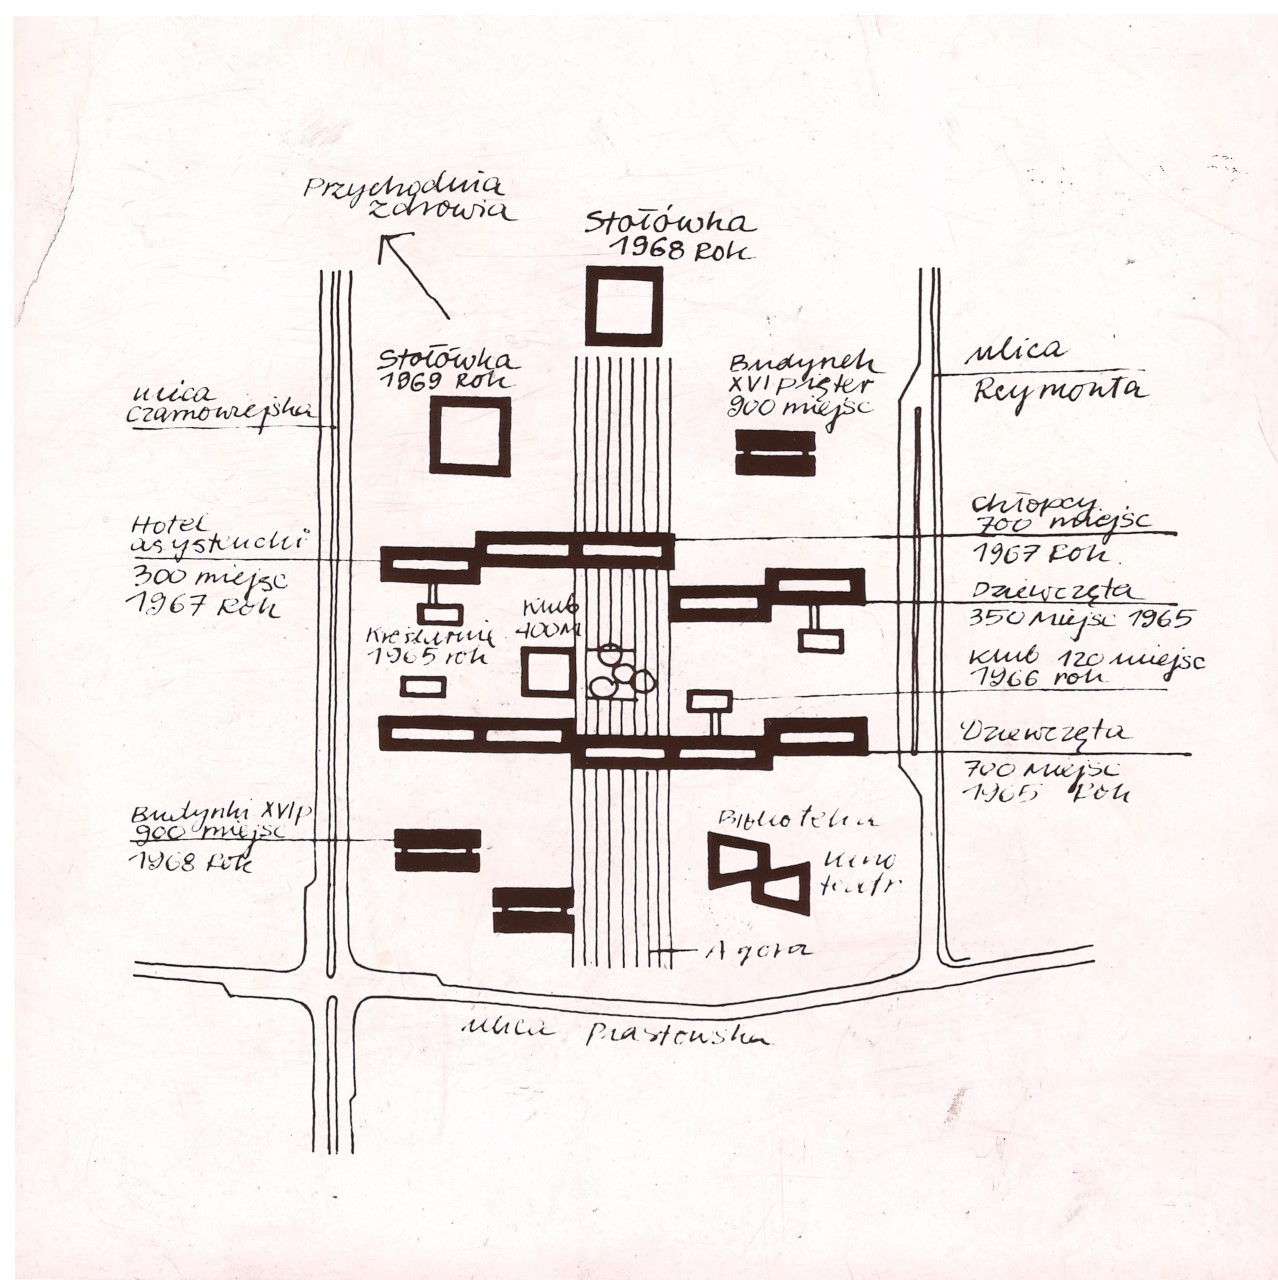 Przychodnia
zdrowia
Stołówka
1968 Rok
Stołówka
1969 Rok
Budynek
XVI pięter
900 miejsc
ulica
Reymonta
ulica
czarnowiejska
Chłopcy
700 miejsc
1967 Rok.
Hotel
asystencki
300 miejsc
1967 Rok
Dziewczęta
350 miejsc 1965
Klub
400M
Kreślarnie
1965 rok
Klub 120 miejsc
1966 rok
Dziewczęta
700 miejsc
1965 Rok
Budynki XVIp
900 miejsc
1968 Rok
Biblioteka
Kino
teatr
Agora
ulica Piastowska